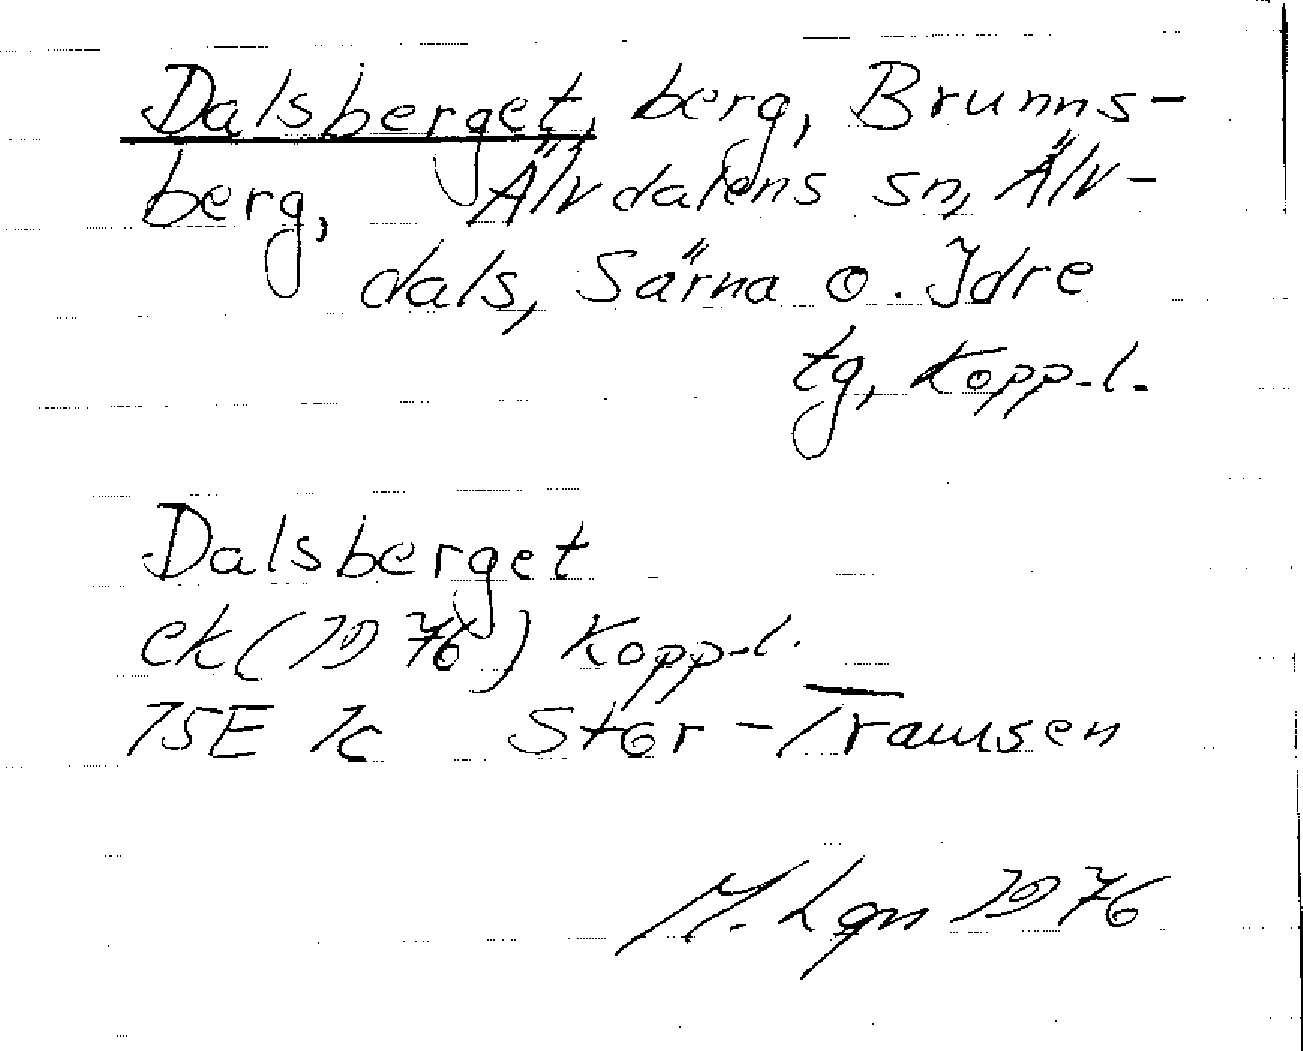 Dalsberget, berg, Brunns-
berg, Älvdalens sn, Älv-
dals, Särna o. Idre
tg, Kopp.l.
Dalsberget
ek (1976) Kopp.l.
15E 1c Stor-Tramsen
M. Lgn 1976